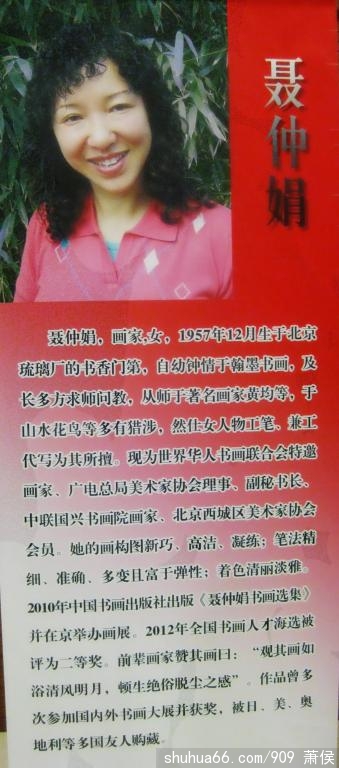 聂仲娟
聂仲娟，画家,女，1957年12月生于北京
琉璃厂的书香门第，自幼钟情于翰墨书画，及
长多方求师问教，从师于著名画家黄均等，于
山水花鸟等多有猎涉，然仕女人物工笔、兼工
代写为其所擅。现为世界华人书画联合会特邀
画家、广电总局美术家协会理事、副秘书长、
中联国兴书画院画家、北京西城区美术家协会
会员。她的画构图新巧、高洁、凝练；笔法精
细、准确、多变且富于弹性；着色清丽淡雅。
2010年中国书画出版社出版《聂仲娟书画选集》
并在京举办画展。2012年全国书画人才海选被
评为二等奖。前辈画家赞其画曰：“观其画如
浴清风明月，顿生绝俗脱尘之感”。作品曾多
次参加国内外书画大展并获奖，被日、美、奥
地利等多国友人购藏。
shuhua66.com/909 萧侯